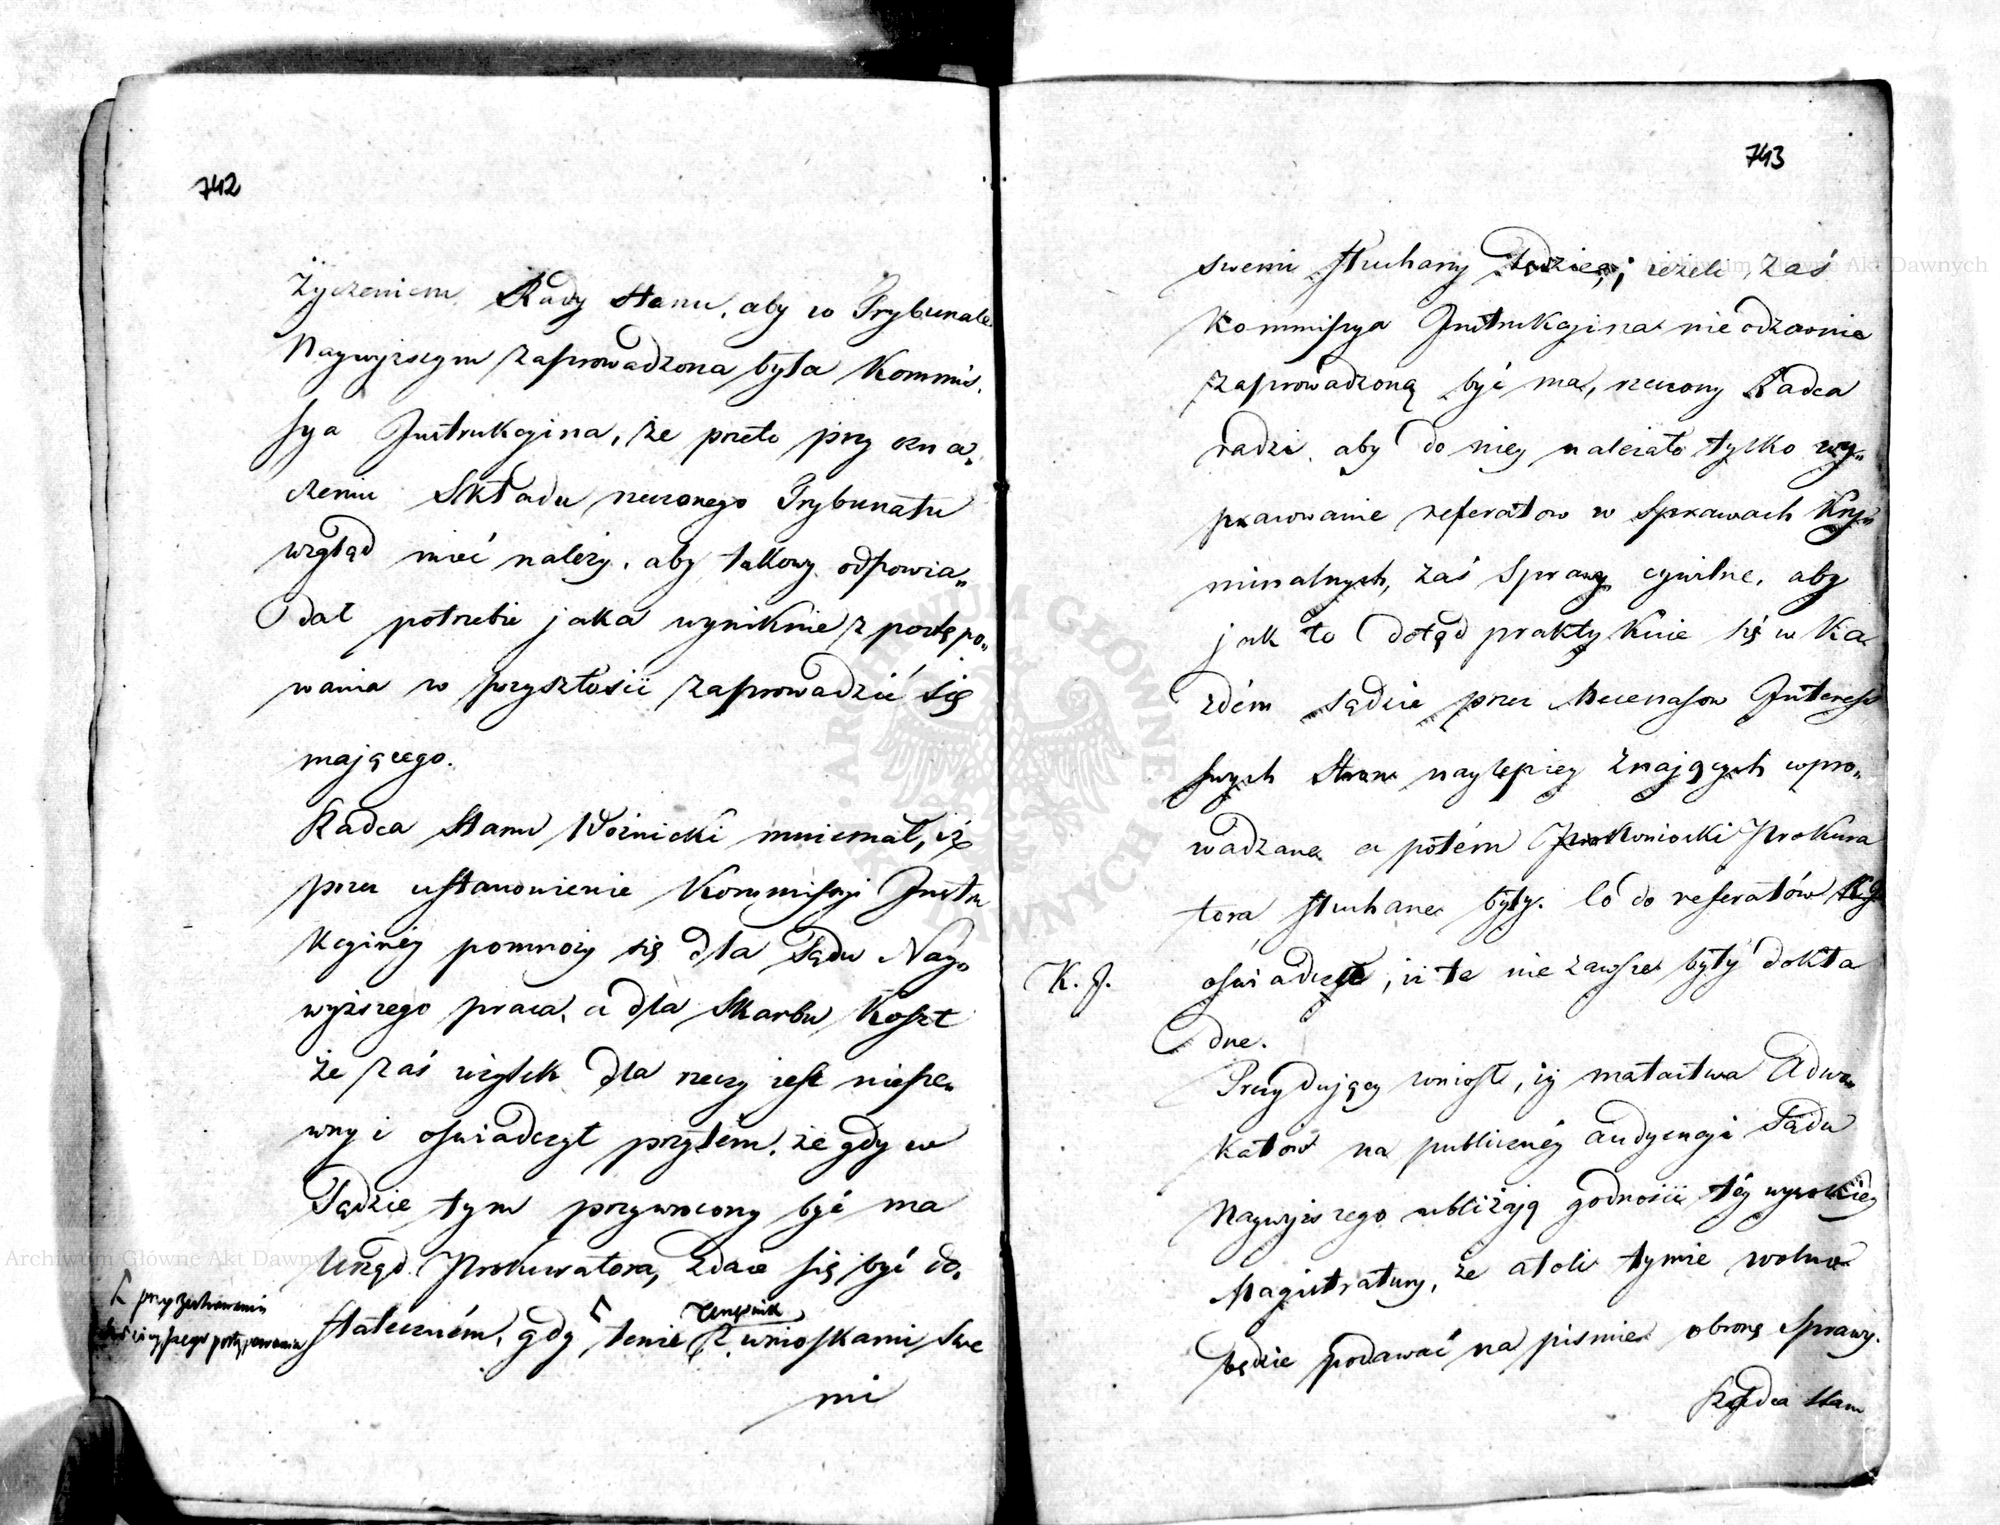 742
Życzeniem Rady Stanu, aby w Trybunale
Naywyższym zaprowadzona była Kommis,
sya Instrukcyina, że przeto przy ozna,
czeniu Składu rzeczonego Trybunału
wzgląd mieć należy, aby takowy odpowia„
dał potrzebie jaka wyniknie z postępo„
wania w przyszłości zaprowadzić się
mającego.
Radca Stanu Woźnicki mniemał, iż
przez ustanowienie Kommissyi Instru
kcyinéy pomnoży się dla Sądu Nay„
wyższego praca, a dla Skarbu Koszt
że zaś użytek dla rzeczy jest niepe„
wny i oświadczył przytém, że gdy w
Sądzie tym przywrócony być ma
Urząd Prokuratora, zdaie się być do„
stateczném, gdy ten z wnioskami swe
mi
przy zachowaniu
postępowania
743
swemi słuchany będzie; ieżeli zaś
Kommissya Instrukcyina nieodzownie
zaprowadzoną być ma, rzeczony Radca
radzi, aby do niey należało tylko wy„
pracowanie referatow w Sprawach Kry„
minalnych, zaś Sprawy cywilne, aby
jak to dotąd praktykuie się w Ka
żdém sądzie przez Mecenasow Interess
swych Stron naylepiey znających wpro„
wadzane a potém wnioski Prokura
tora słuchane były. Co do referatów
K. J. oświadcza, iż te nie zawsze były dokła
dne.
Prezyduiący wniosł, iż matactwa Adwo„
katow na publicznéy audyencyi Sądu
Naywyższego ubliżają godności téy wysokiey
Magistratury, że atoli tymże wolno
będzie podawać na piśmie obronę Sprawy.
Radca Stanu